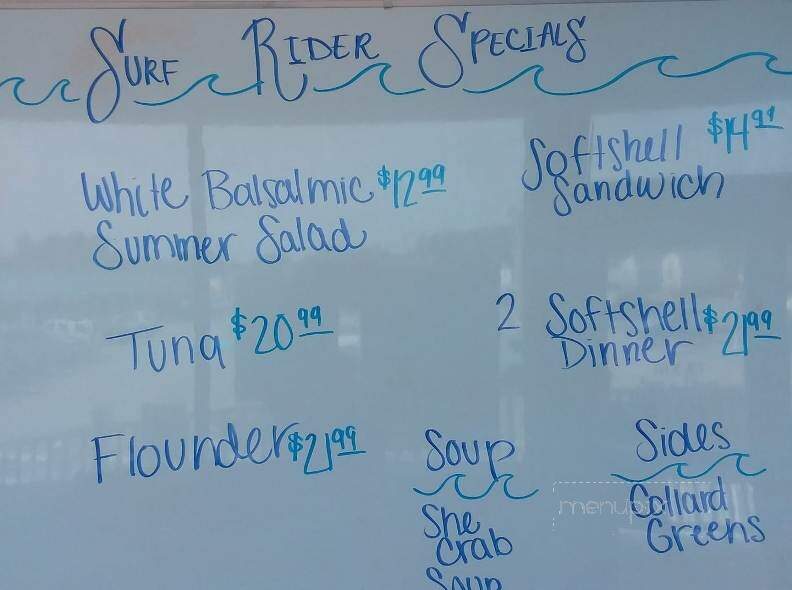 Surf Rider Specials
White Balsalmic $12.99
Summer Salad
Tuna $20.99
Flounder $21.99
Softshell $14.99
Sandwich
2 Softshell $21.99
Dinner
Soup
She
Crab
Soup
Sides
Collard
Greens